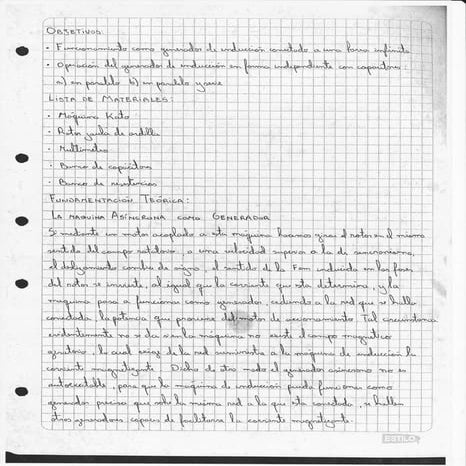 OBJETIVOS:
• Funcionamiento como generador de inducción conectado a una barra infinita
• Operación del generador de inducción en forma independiente con capacitores:
a) en paralelo b) en paralelo y serie
LISTA DE MATERIALES:
• Máquina Kato
• Rotor jaula de ardilla
• Multímetro
• Banco de capacitores
Banco de resistencias
FUNDAMENTACIÓN TEÓRICA:
LA MAQUINA ASÍNCRONA COMO GENERADOR
Si mediante un motor acoplado a esta máquina hacemos girar el rotor en el mismo
sentido del campo rotatorio, a una velocidad superior a la de sincronismo,
el deslizamiento cambia de signo, el sentido de la Fem inducida en las fases
del rotor se invierte, al igual que la corriente que esta determina, y la
maquina pasa a funcionar como generador, cediendo a la red que se halla
conectada la potencia que proviene del motor de accionamiento. Tal circunstancia
evidentemente no se da si en la máquina no existe el campo magnético
giratorio, lo cual exige de la red suministre a la máquina de inducción la
corriente magnetizante. Dicho de otro modo el generador asíncrono no es
autoexcitable, para que la máquina de inducción pueda funcionar como
generador precisa que sobre la misma red a la que esta conectado, se hallen
otros generadores capaces de facilitarse la corriente magnetizante.
ESTILO